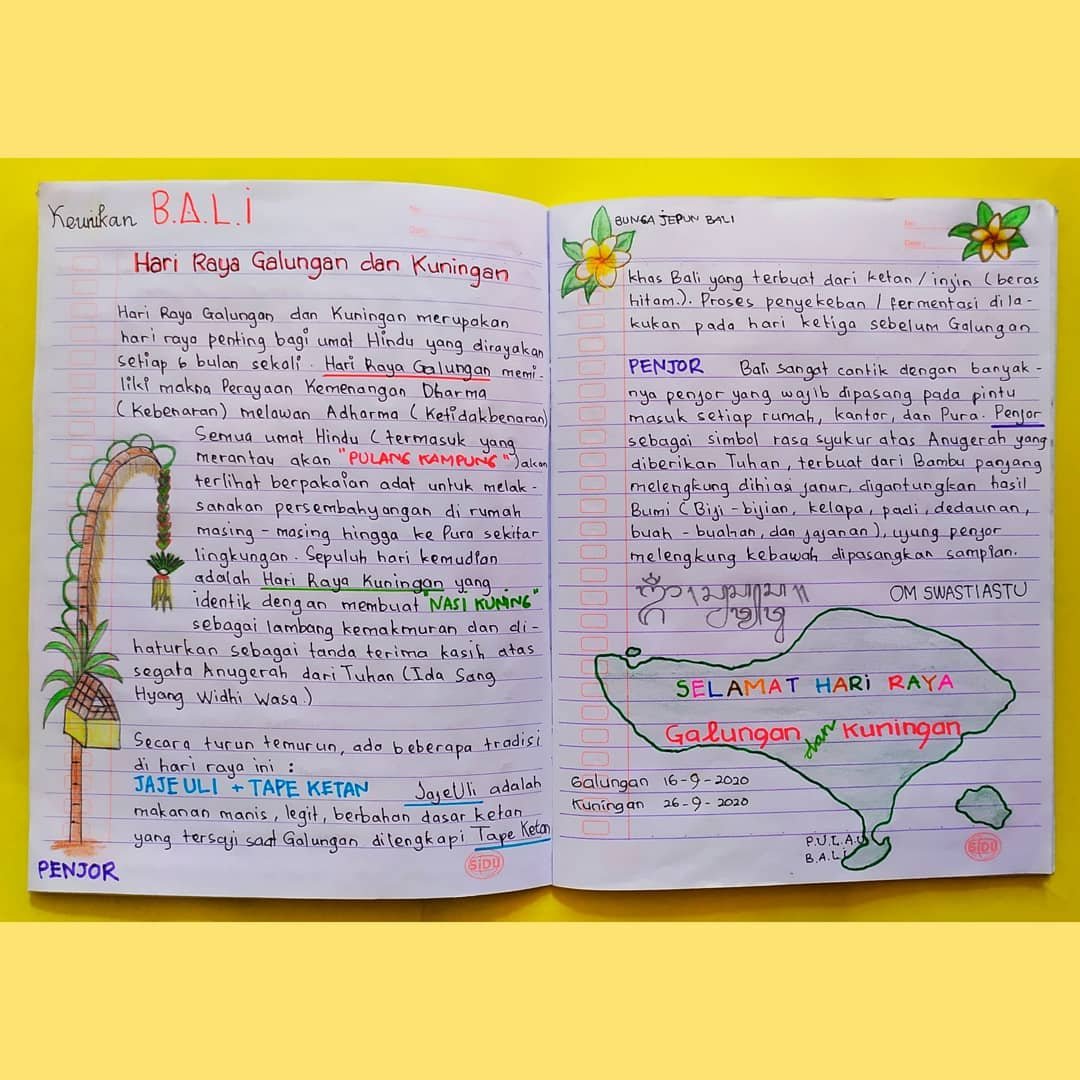 Keunikan B.A.L.i
No:
Date:
Hari Raya Galungan dan Kuningan
Hari Raya Galungan dan Kuningan merupakan
hari raya penting bagi umat Hindu yang dirayakan
setiap 6 bulan sekali. Hari Raya Galungan memi-
liki makna Perayaan Kemenangan Dharma
(Kebenaran) melawan Adharma (Ketidakbenaran)
Semua umat Hindu (termasuk yang
merantau akan "PULANG KAMPUNG") akan
terlihat berpakaian adat untuk melak-
sanakan persembahyangan di rumah
masing-masing hingga ke Pura sekitar
lingkungan. Sepuluh hari kemudian
adalah Hari Raya Kuningan yang
identik dengan membuat "NASI KUNING"
sebagai lambang kemakmuran dan di-
haturkan sebagai tanda terima kasih atas
segala Anugerah dari Tuhan (Ida Sang
Hyang Widhi Wasa.)
Secara turun temurun, ada beberapa tradisi
di hari raya ini :
JAJE ULI + TAPE KETAN JajeUli adalah
makanan manis, legit, berbahan dasar ketan
yang tersaji saat Galungan dilengkapi Tape Ketan
PENJOR
SiDU
BUNGA JEPUN BALI
No:
Date:
khas Bali yang terbuat dari ketan / injin (beras
hitam.). Proses penyekeban / fermentasi dila-
kukan pada hari ketiga sebelum Galungan
PENJOR Bali sangat cantik dengan banyak-
nya penjor yang wajib dipasang pada pintu
masuk setiap rumah, kantor, dan Pura. Penjor
sebagai simbol rasa syukur atas Anugerah yang
diberikan Tuhan, terbuat dari Bambu panjang
melengkung dihiasi janur, digantungkan hasil
Bumi (Biji-bijian, kelapa, padi, dedaunan,
buah-buahan, dan jajanan), ujung penjor
melengkung kebawah dipasangkan sampian.
OM SWASTIASTU
SELAMAT HARi RAYA
Galungan dan Kuningan
Galungan 16-9-2020
Kuningan 26-9-2020
P.U.L.A.U
B.A.L.i
SiDU